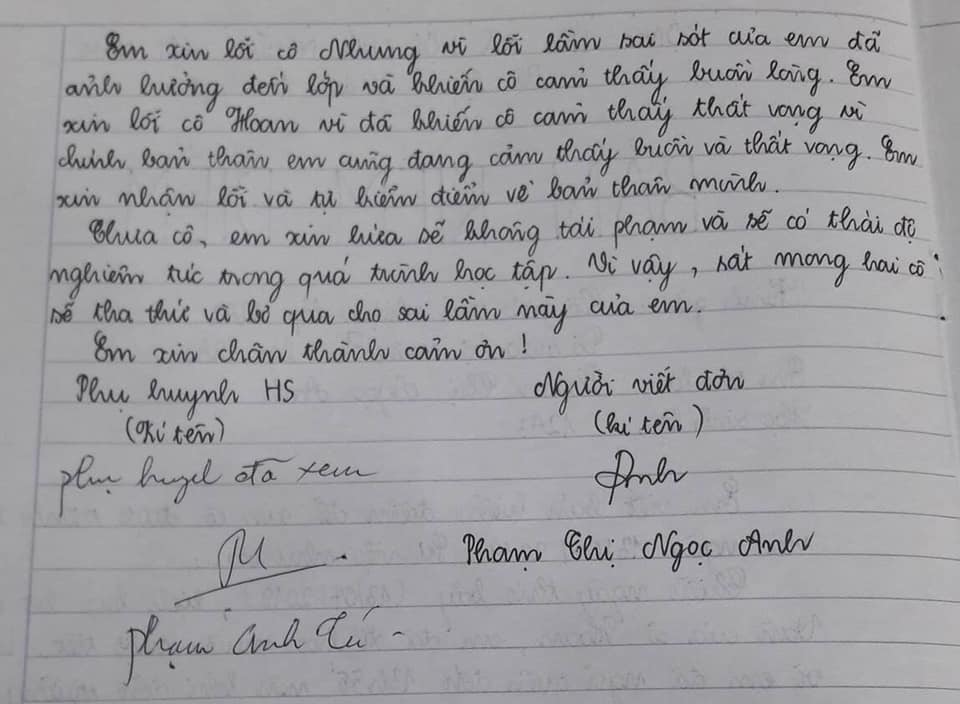 Em xin lỗi cô Nhung vì lỗi lầm sai sót của em đã
ảnh hưởng đến lớp và khiến cô cảm thấy buồn lòng. Em
xin lỗi cô Hoan vì đã khiến cô cảm thấy thất vọng vì
chính bản thân em cũng đang cảm thấy buồn và thất vọng. Em
xin nhận lỗi và tự kiểm điểm về bản thân mình.
Thưa cô, em xin hứa sẽ không tái phạm và sẽ có thái độ
nghiêm túc trong quá trình học tập. Vì vậy, rất mong hai cô
sẽ tha thứ và bỏ qua cho sai lầm này của em.
Em xin chân thành cảm ơn!
Phụ huynh HS
Người viết đơn
(Kí tên)
(kí tên)
phụ huynh đã xem
Anh
Phạm Thị Ngọc Anh
Phạm Anh Tú -